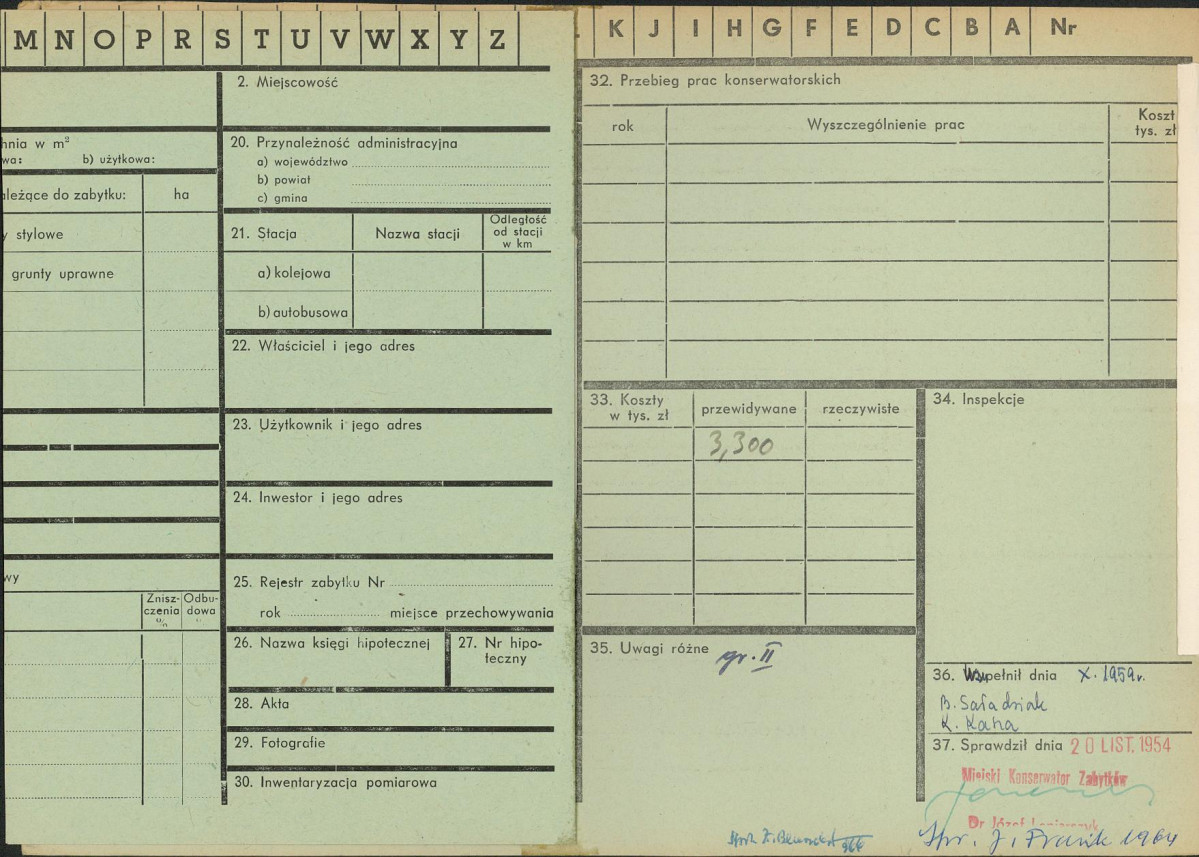 M N O P R S T U V W X Y Z
hnia w m²
wa: b) użytkowa:
ależące do zabytku: ha
y stylowe
grunty uprawne
wy
Znisz-
czenia
Odbu-
dowa
2. Miejscowość
20. Przynależność administracyjna
a) województwo
b) powiat
c) gmina
21. Stacja Nazwa stacji
Odległość
od stacji
w km
a) kolejowa
b) autobusowa
22. Właściciel i jego adres
23. Użytkownik i jego adres
24. Inwestor i jego adres
25. Rejestr zabytku Nr
rok miejsce przechowywania
26. Nazwa księgi hipotecznej
27. Nr hipo-
teczny
28. Akta
29. Fotografie
30. Inwentaryzacja pomiarowa
K J I H G F E D C B A Nr
32. Przebieg prac konserwatorskich
rok Wyszczególnienie prac
Koszt
tys. zł
33. Koszty
w tys. zł
przewidywane rzeczywiste
3,300
34. Inspekcje
35. Uwagi różne gr. II
36. Wypełnił dnia X. 1959 r.
B. Saładziak
K. Kania
37. Sprawdził dnia 20 LIST. 1954
Miejski Konserwator Zabytków
Dr Józef
Spr. J. Frank 1964